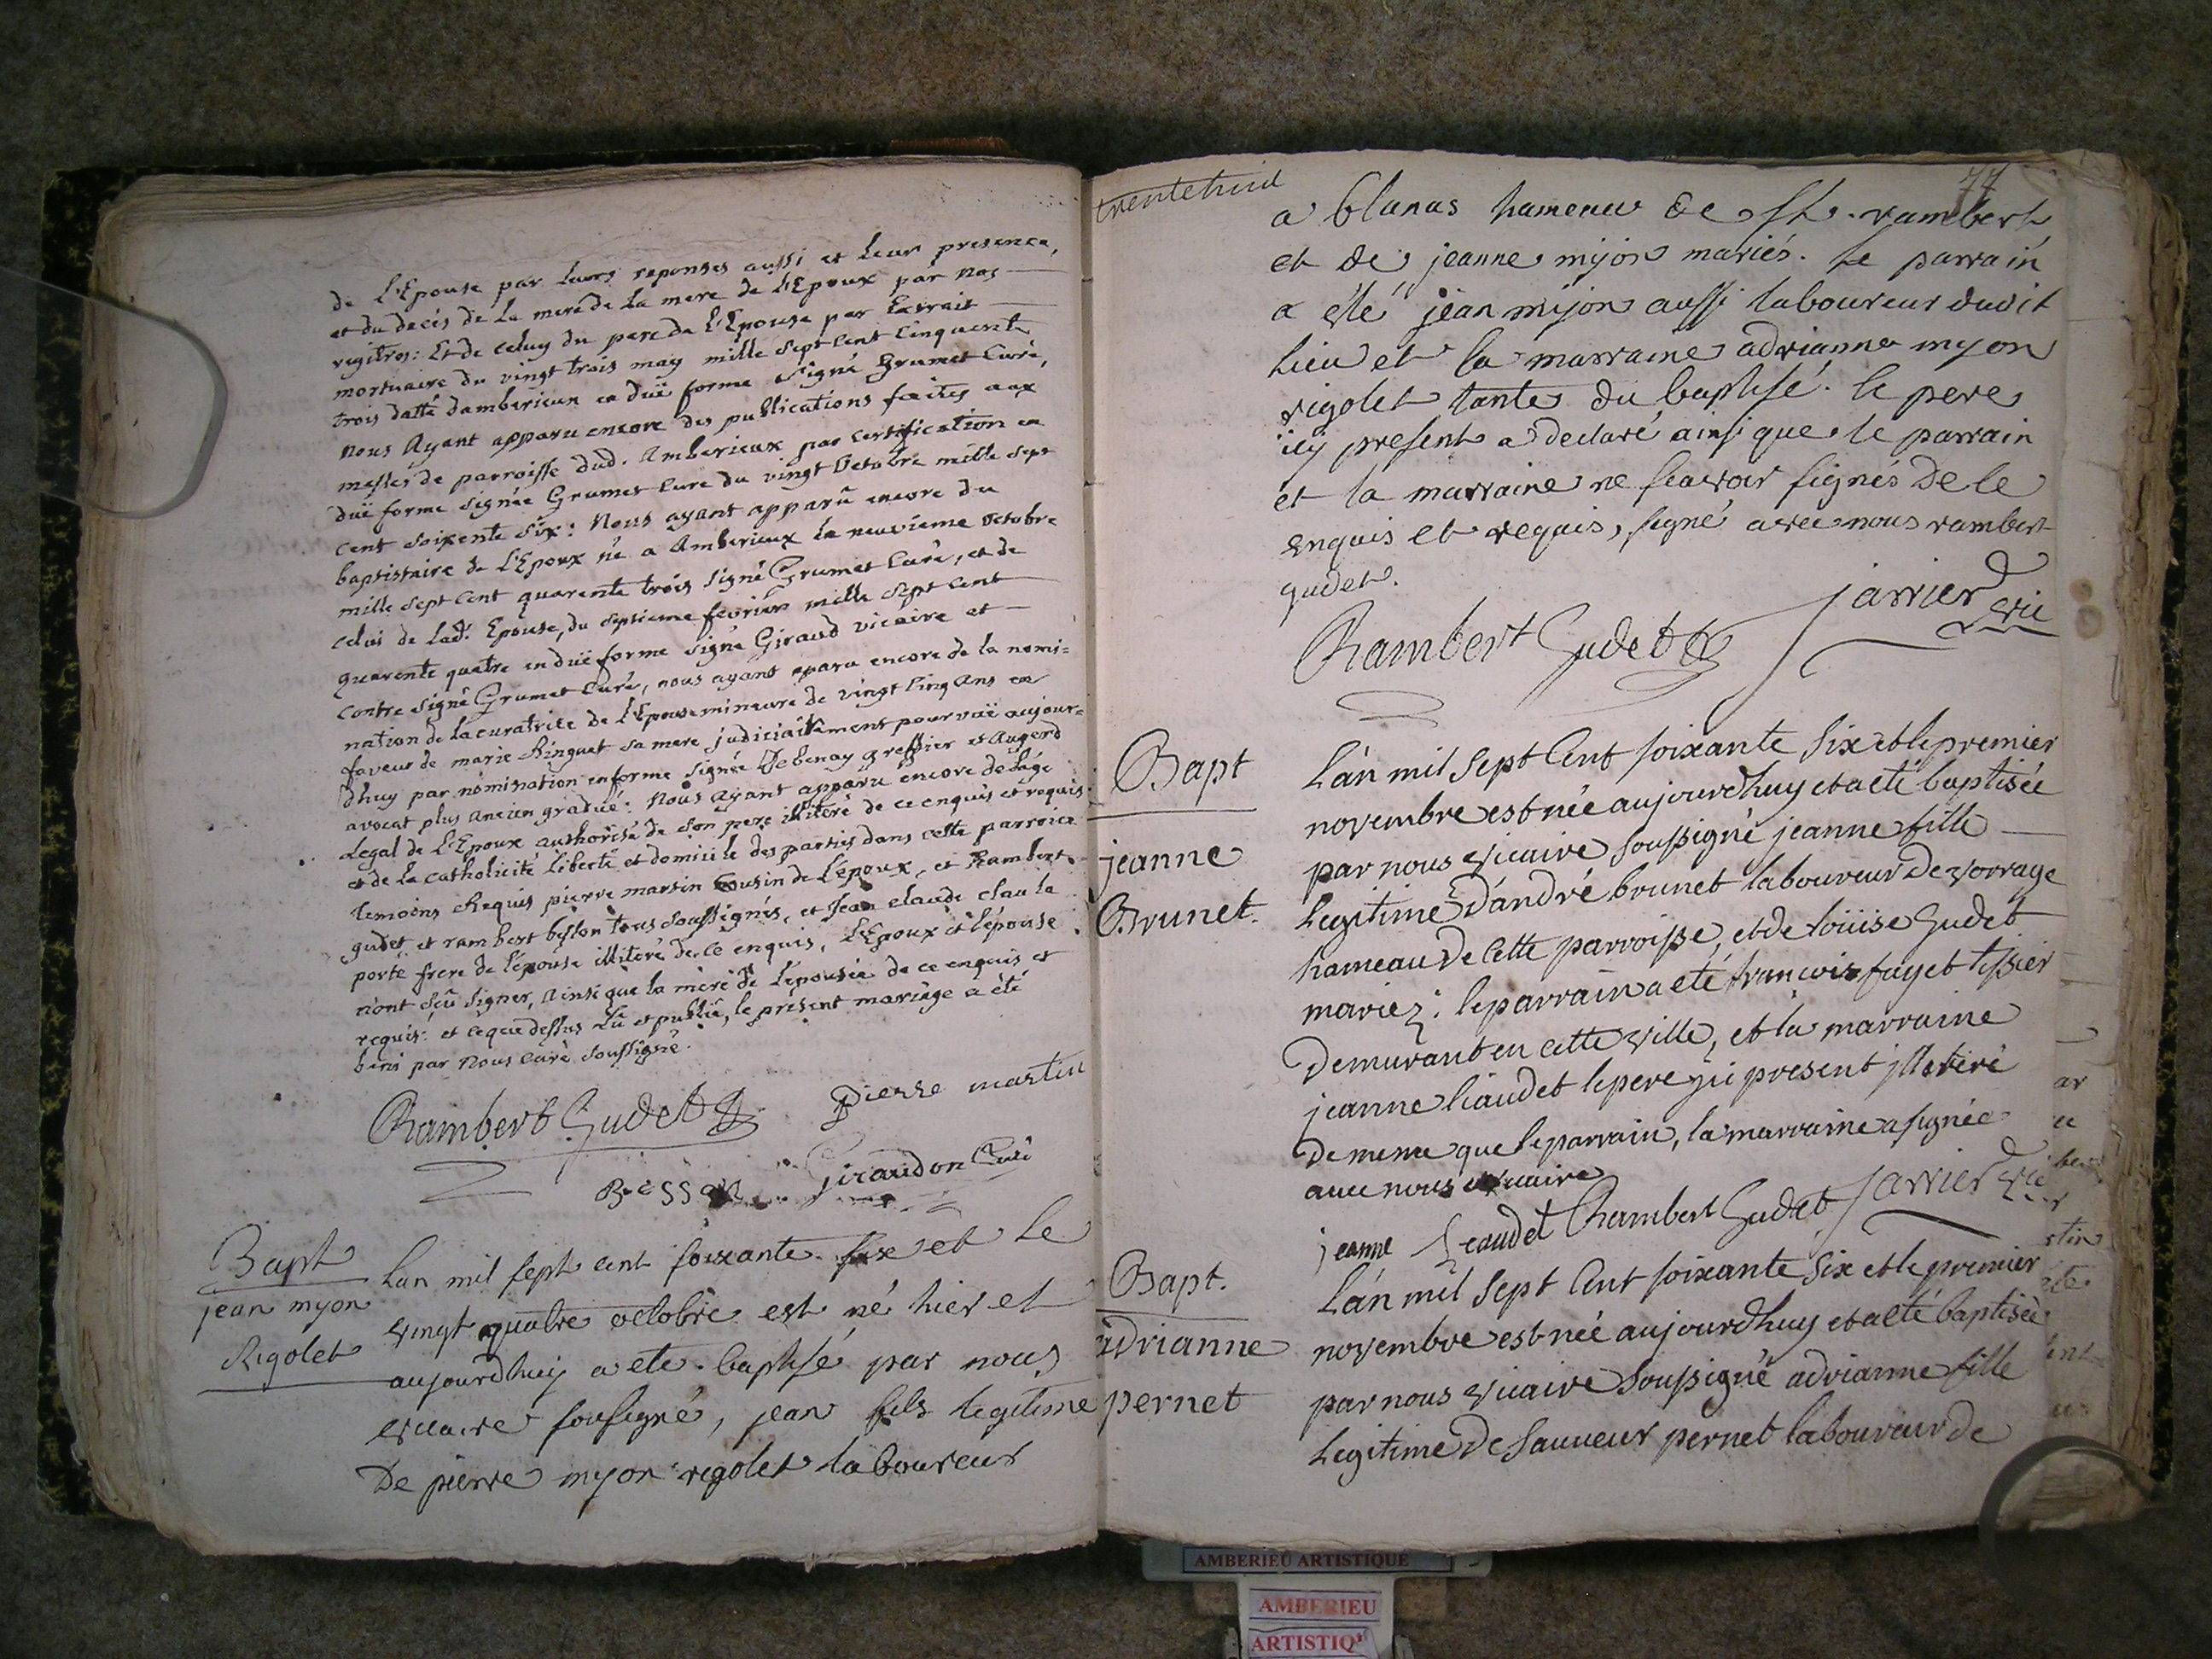 de L'Epouse par leurs reponses aussi et leur presence,
et du decés de La mere de La mere de L'Epoux par nos
registres: Et de celuy du pere de L'Epouse par Extrait
mortuaire du vingt trois may mille Sept Cent Cinquente
trois datté damberieux en düe forme Signé Grumet Curé,
nous Ayant apparu encore des publications faites aux
messes de parroisse dud. Amberieux par certification en
düe forme signée Grumet Curé du vingt Octobre mille Sept
cent soixente Six: Nous ayant apparû encore du
baptistaire de L'Epoux né a Amberieux le neuvieme octobre
mille Sept Cent quarente trois Signé Grumet Curé, et de
celui de lad. Epouse, du Septieme fevrier mille Sept Cent
quarente quatre en düe forme Signé Giraud vicaire et
contre Signé Grumet Curé, nous ayant aparu encore de la nomi=
nation de la curatrice de L'Epouse mineure de vingt Cinq Ans en
faveur de marie Ringuet sa mere judiciairement pourvüe aujour=
dhuy par nomination en forme Signée Debenay greffier et Augerd
avocat plus Ancien gradué: Nous ayant apparu encore de L'age
Legal de L'Epoux authorisé de son pere illiteré de ce enquis et requis
et de la catholicité Liberté et domicile des parties dans cette parroice
temoins Requis pierre martin Cousin de L'epoux, et Rambert
gudet et rambert besson tous Soussignés, et Jean claude clau la
porte frere de l'epouse illiteré de ce enquis, L'Epoux et lépouse
n'ont sçû Signer, Ainsi que la mere de l'epouse de ce enquis et
requis: et ce que dessus Lû et publié, le présent mariage a été
beni par Nous Curé Soussigné.
Rambert Gudet pierre martin
Besson Giraudon Curé
Bapt
jean myon
Rigolet
Lan mil sept cent soixante six et le
vingt quatre octobre est né hier et
aujourdhuy a eté baptisé par nous
vicaire sousigné, jean fils legitime
De pierre myon rigolet laboureur
trentehuit
77
a blanas hameau de st. rambert
et de jeanne mijon mariés. le parrain
a été jean mijon aussi laboureur dudit
lieu et la marraine adrianne myon
rigolet tante du baptisé. le pere
icy present a declaré ainsi que le parrain
et la marraine ne scavoir signés de ce
enquis et requis, signé avec nous rambert
gudet.
Rambert Gudet jarrier vic
Bapt
jeanne
Brunet.
L'an mil Sept Cent soixante Six et le premier
novembre est née aujourdhuy et a eté baptisée
par nous vicaire soussigné jeanne fille
Legitime d'andré brunet laboureur de vorrage
hameau de Cette parroisse, et de loüise Gudet
mariez: le parrain a eté françois fayet tissier
Demurant en cette ville, et la marraine
jeanne liaudet le pere yci present jlliteré
De meme que le parrain, la marraine a signée
avec nous vicaire
jeanne Leaudet Rambert Gudet jarrier vic
Bapt.
adrianne
pernet
L'an mil Sept Cent soixante Six et le premier
novembre est née aujourdhuy et a eté baptisée
par nous vicaire Soussigné adrianne fille
Legitime de sauveur pernet laboureur de
AMBERIEU ARTISTIQUE
AMBERIEU
ARTISTIQ